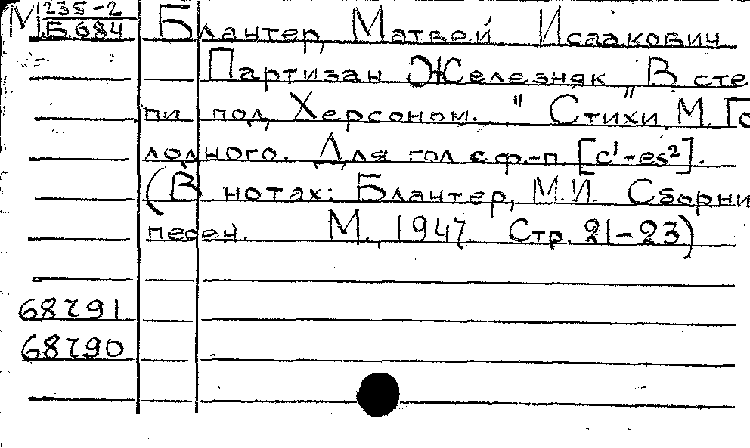 М 235-2
Б 684
Блантер, Матвей Исаакович
Партизан Железняк "В сте
пи под Херсоном. " Стихи М. Го
лодного. Для гол. с ф.-п. [c¹-es²].
(В нотах: Блантер, М.И. Сборни
песен. М., 1947. Стр. 21-23)
68791
68790